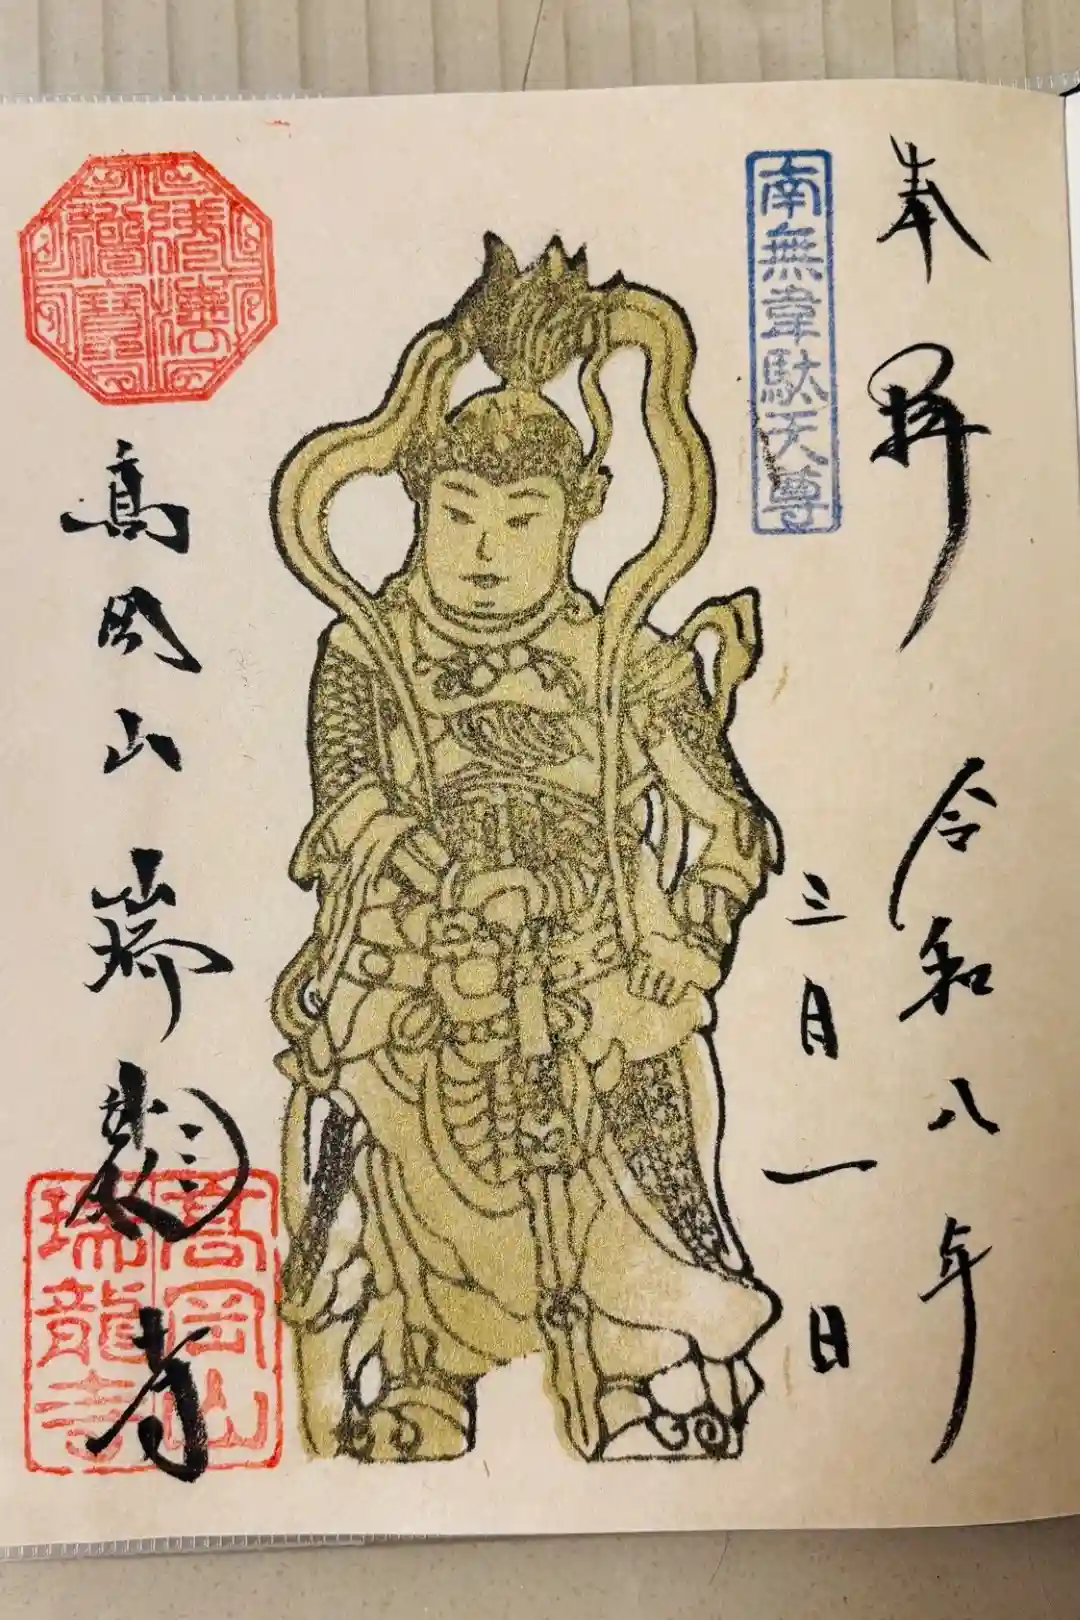 奉拝
令和八年
三月一日
南無韋駄天尊
佛法僧寶
高岡山瑞龍寺
高岡山
瑞龍寺